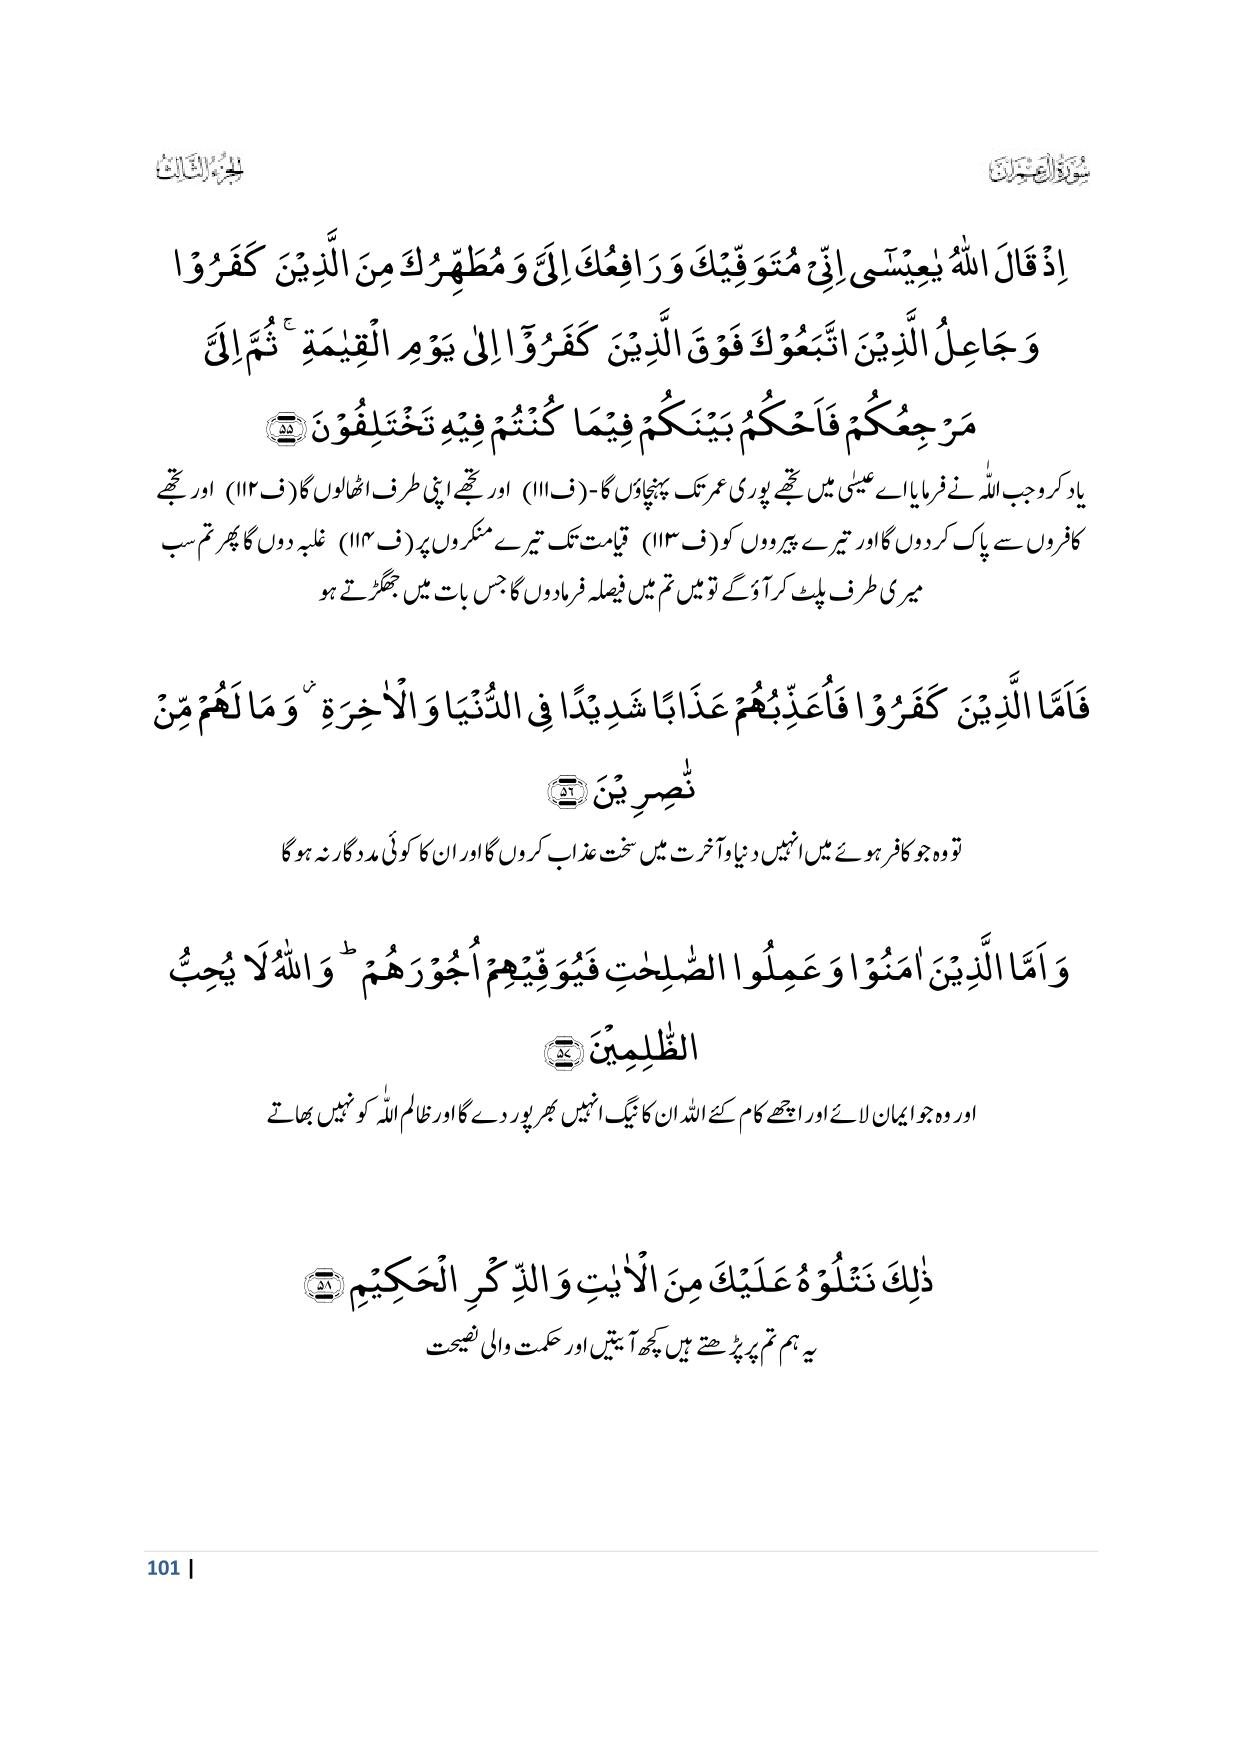 سُوْرَةُ اٰلِ عِمْرٰن
اَلْجُزْءُ الثَّالِثُ
اِذْ قَالَ اللّٰهُ یٰعِیْسٰۤى اِنِّیْ مُتَوَفِّیْكَ وَ رَافِعُكَ اِلَیَّ وَ مُطَهِّرُكَ مِنَ الَّذِیْنَ كَفَرُوْا
وَ جَاعِلُ الَّذِیْنَ اتَّبَعُوْكَ فَوْقَ الَّذِیْنَ كَفَرُوْۤا اِلٰى یَوْمِ الْقِیٰمَةِ ۚ ثُمَّ اِلَیَّ
مَرْجِعُكُمْ فَاَحْكُمُ بَیْنَكُمْ فِیْمَا كُنْتُمْ فِیْهِ تَخْتَلِفُوْنَ ﴿۵۵﴾
یاد کرو جب اللّٰہ نے فرمایا اے عیسٰی میں تجھے پوری عمر تک پہنچاؤں گا-(ف۱۱۱) اور تجھے اپنی طرف اٹھالوں گا(ف۱۱۲) اور تجھے
کافروں سے پاک کردوں گا اور تیرے پیرووں کو(ف۱۱۳) قیامت تک تیرے منکروں پر(ف۱۱۴) غلبہ دوں گا پھر تم سب
میری طرف پلٹ کر آؤ گے تو میں تم میں فیصلہ فرمادوں گا جس بات میں جھگڑتے ہو
فَاَمَّا الَّذِیْنَ كَفَرُوْا فَاُعَذِّبُهُمْ عَذَابًا شَدِیْدًا فِی الدُّنْیَا وَ الْاٰخِرَةِ ٘ وَ مَا لَهُمْ مِّنْ
نّٰصِرِیْنَ ﴿۵۶﴾
تو وہ جو کافر ہوئے میں انہیں دنیا و آخرت میں سخت عذاب کروں گا اور ان کا کوئی مددگار نہ ہوگا
وَ اَمَّا الَّذِیْنَ اٰمَنُوْا وَ عَمِلُوا الصّٰلِحٰتِ فَیُوَفِّیْهِمْ اُجُوْرَهُمْ ؕ وَ اللّٰهُ لَا یُحِبُّ
الظّٰلِمِیْنَ ﴿۵۷﴾
اور وہ جو ایمان لائے اور اچھے کام کئے اللہ ان کا نیگ انہیں بھرپور دے گا اور ظالم اللّٰہ کو نہیں بھاتے
ذٰلِكَ نَتْلُوْهُ عَلَیْكَ مِنَ الْاٰیٰتِ وَ الذِّكْرِ الْحَكِیْمِ ﴿۵۸﴾
یہ ہم تم پر پڑھتے ہیں کچھ آیتیں اور حکمت والی نصیحت
101 |